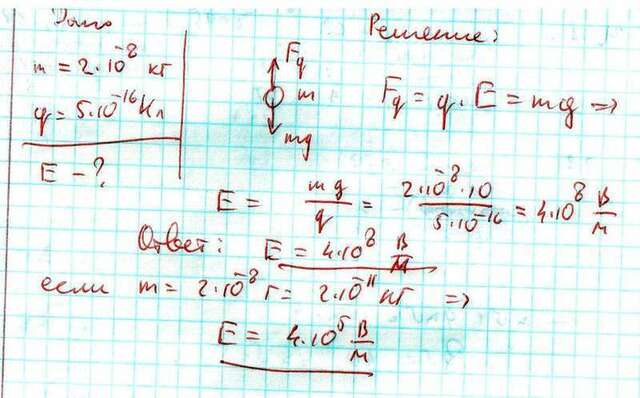 Дано
Решение:
m = 2·10⁻⁸ кг
q = 5·10⁻¹⁶ Кл
E – ?
F_q
m
mg
F_q = q·E = mg =>
E = mg/q = 2·10⁻⁸·10/5·10⁻¹⁶ = 4·10⁸ В/м
Ответ: E = 4·10⁸ В/м
если m = 2·10⁻⁸ г = 2·10⁻¹¹ кг =>
E = 4·10⁵ В/м